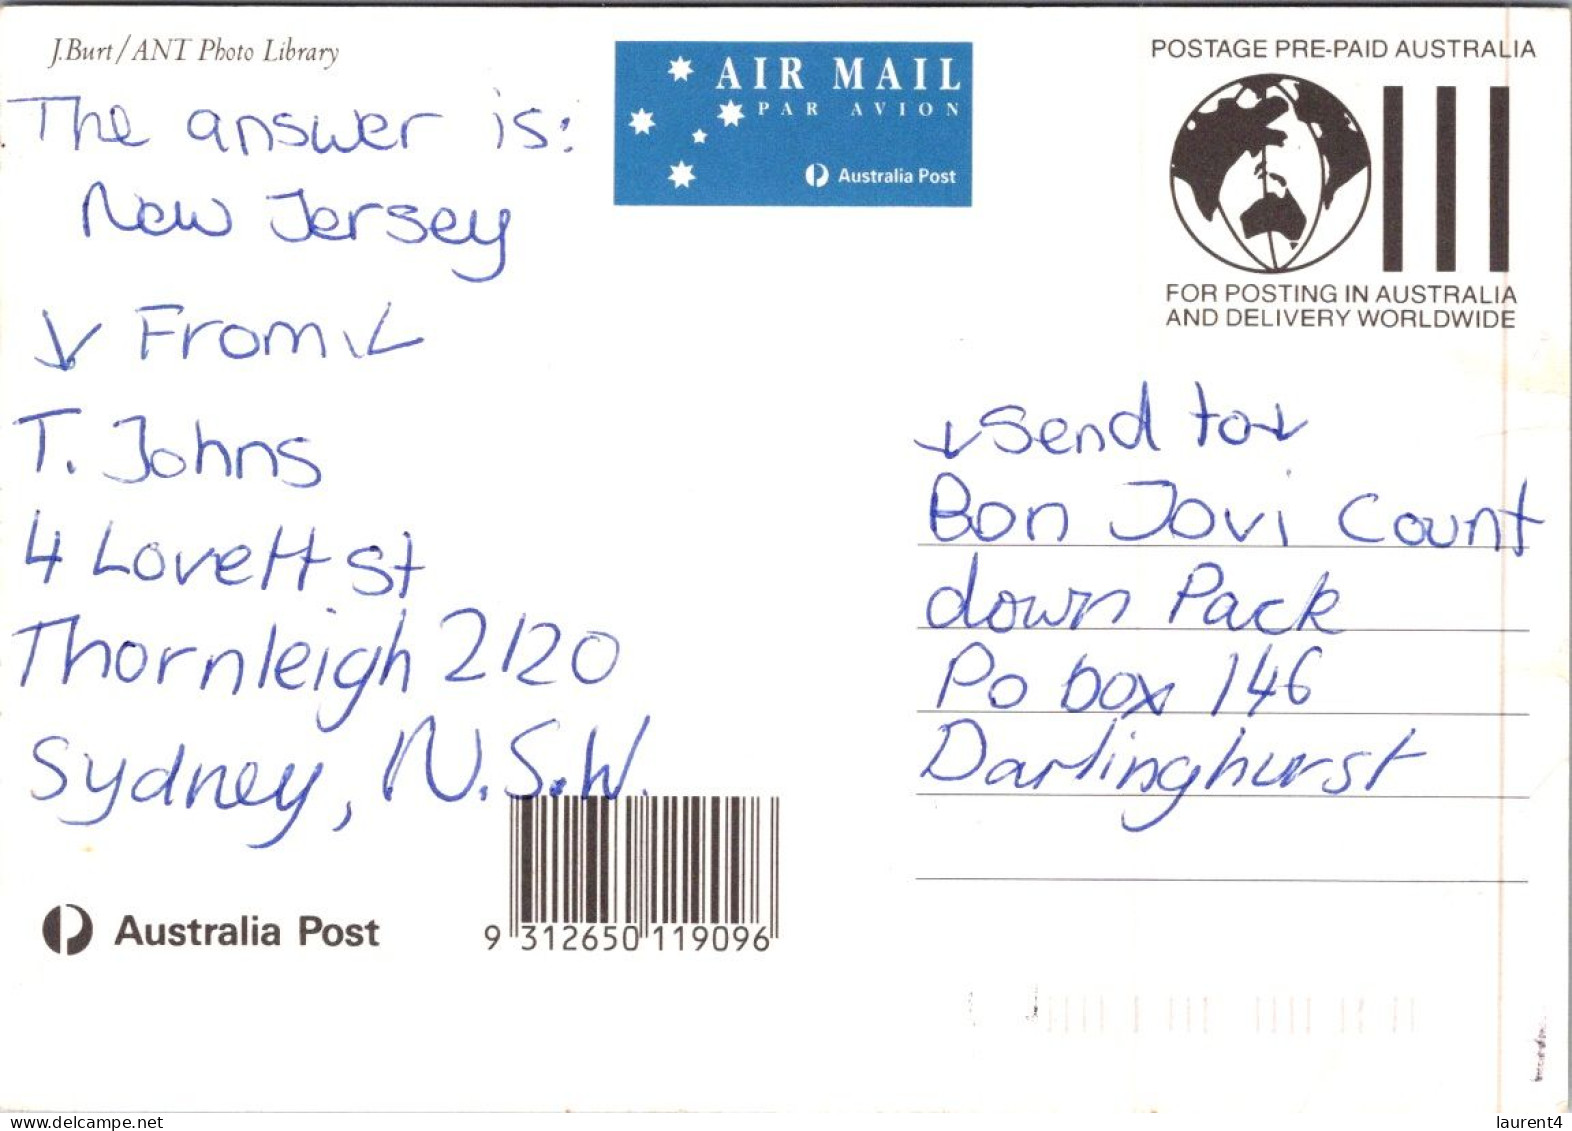 J.Burt/ANT Photo Library
The answer is:
New Jersey
↓ From ↓
T. Johns
4 Lovett St
Thornleigh 2120
Sydney, N.S.W.
Australia Post
9 312650 119096
AIR MAIL
PAR AVION
Australia Post
POSTAGE PRE-PAID AUSTRALIA
FOR POSTING IN AUSTRALIA
AND DELIVERY WORLDWIDE
↓ Send to ↓
Bon Jovi Count
down Pack
Po box 146
Darlinghurst
laurent4